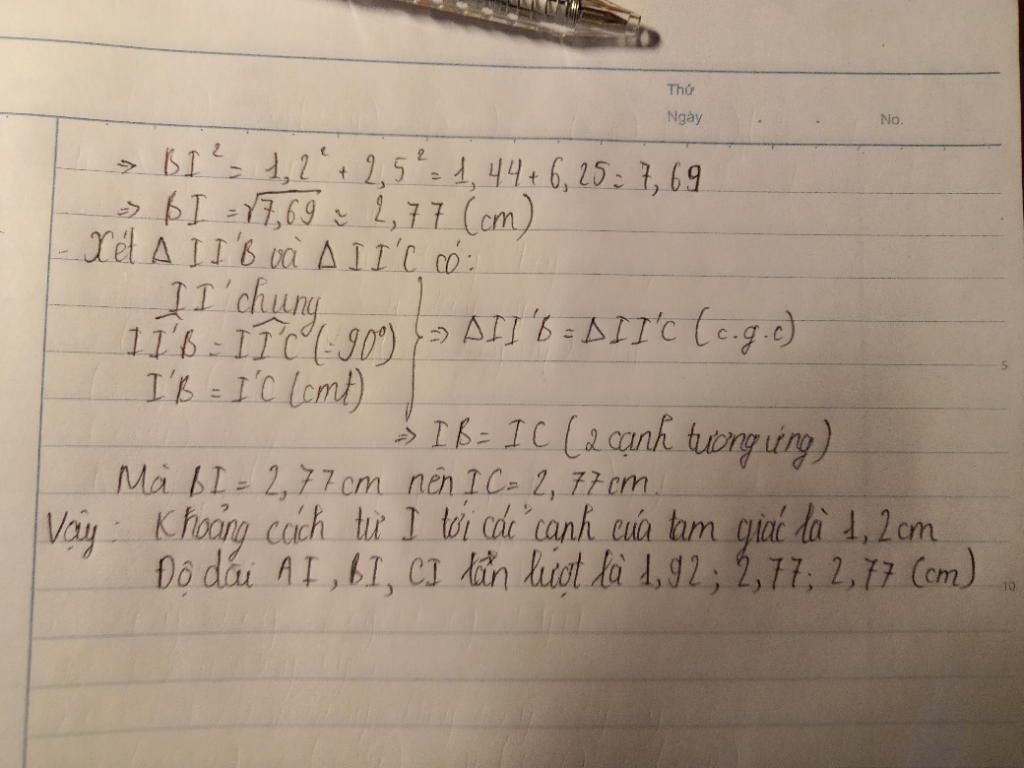 Thứ
Ngày . . No.
⇒ BI² = 1,2² + 2,5² = 1,44 + 6,25 = 7,69
⇒ BI = √7,69 ≈ 2,77 (cm)
- Xét Δ II'B và Δ II'C có:
II' chung
II'B = II'C (= 90°)
⇒ ΔII'B = ΔII'C (c.g.c)
I'B = I'C (cmt)
5
⇒ IB = IC (2 cạnh tương ứng)
Mà BI = 2,77cm nên IC = 2,77cm.
Vậy: Khoảng cách từ I tới các cạnh của tam giác là 1,2cm
Độ dài AI, BI, CI lần lượt là 1,92; 2,77; 2,77 (cm)
10